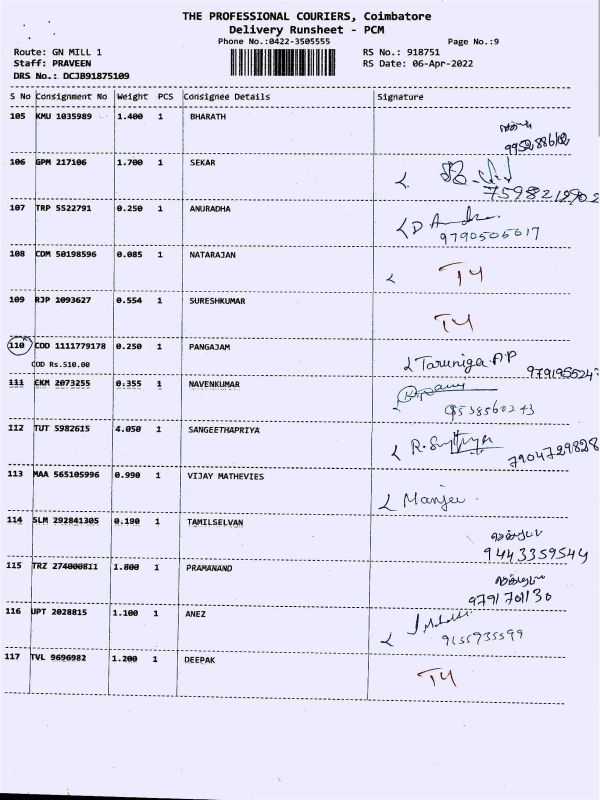 THE PROFESSIONAL COURIERS, Coimbatore
Delivery Runsheet - PCM
Phone No.:0422-3505555 Page No.:9
Route: GN MILL 1 RS No.: 918751
Staff: PRAVEEN RS Date: 06-Apr-2022
DRS No.: DCJB91875109
S No Consignment No Weight PCS Consignee Details Signature
105 KMU 1035989 1.400 1 BHARATH
106 GPM 217106 1.700 1 SEKAR
107 TRP 5522791 0.250 1 ANURADHA
9790505617
108 CDM 50198596 0.085 1 NATARAJAN T4
109 RJP 1093627 0.554 1 SURESHKUMAR T4
110 COD 1111779178 0.250 1 PANGAJAM Taruniga AP
COD Rs.510.00
111 CKM 2073255 0.355 1 NAVENKUMAR
9538560243
112 TUT 5982615 4.050 1 SANGEETHAPRIYA
7904729828
113 MAA 565105996 0.990 1 VIJAY MATHEVIES Manjee
114 SLM 292841305 0.190 1 TAMILSELVAN
9443359544
115 TRZ 274000811 1.800 1 PRAMANAND
9791701130
116 UPT 2028815 1.100 1 ANEZ
9155935599
117 TVL 9696982 1.200 1 DEEPAK T4